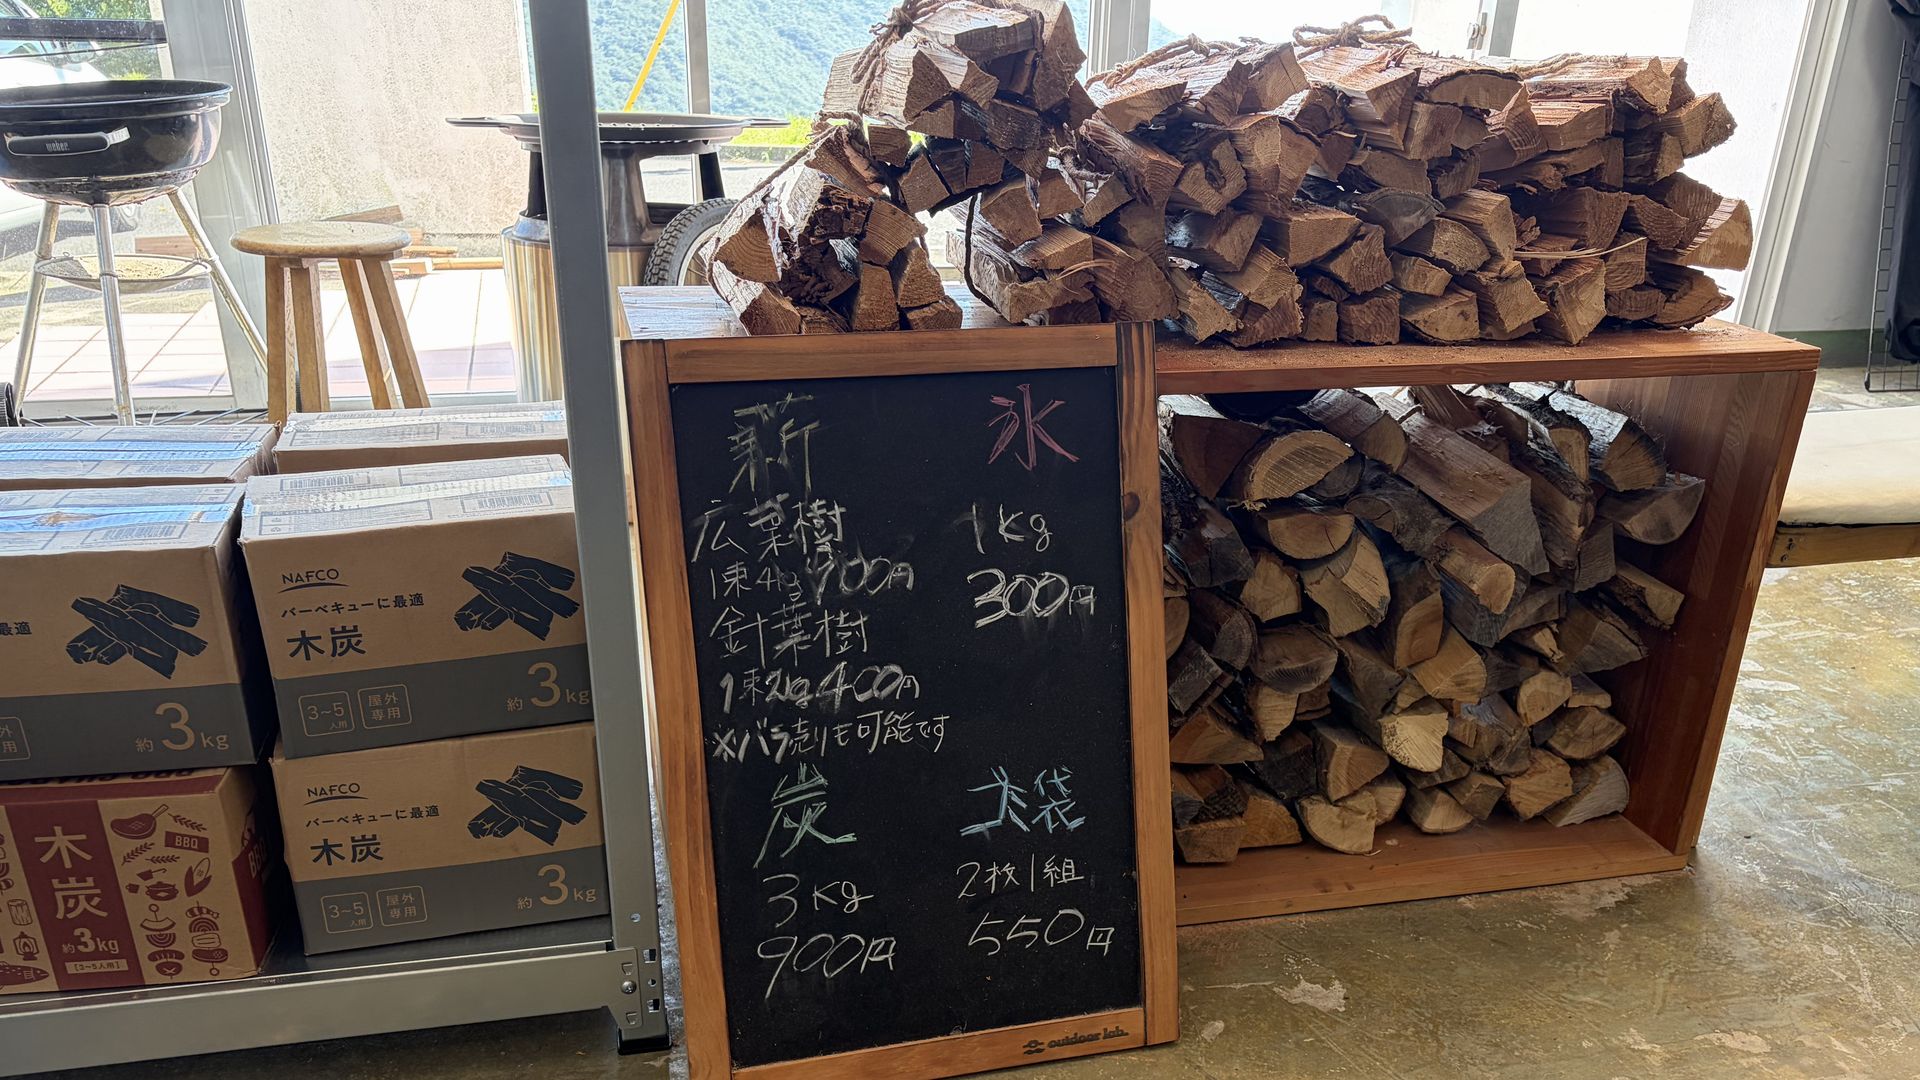 weber
薪
広葉樹
1束4kg 700円
針葉樹
1束2kg 400円
※バラ売りも可能です
炭
3kg
900円
氷
1kg
300円
火袋
2枚1組
550円
outdoor lab.
NAFCO
バーベキューに最適
木炭
3~5人用
屋外専用
約3kg
NAFCO
バーベキューに最適
木炭
3~5人用
屋外専用
約3kg
最適
約3kg
木炭
約3kg
[3~5人用]
BBQ